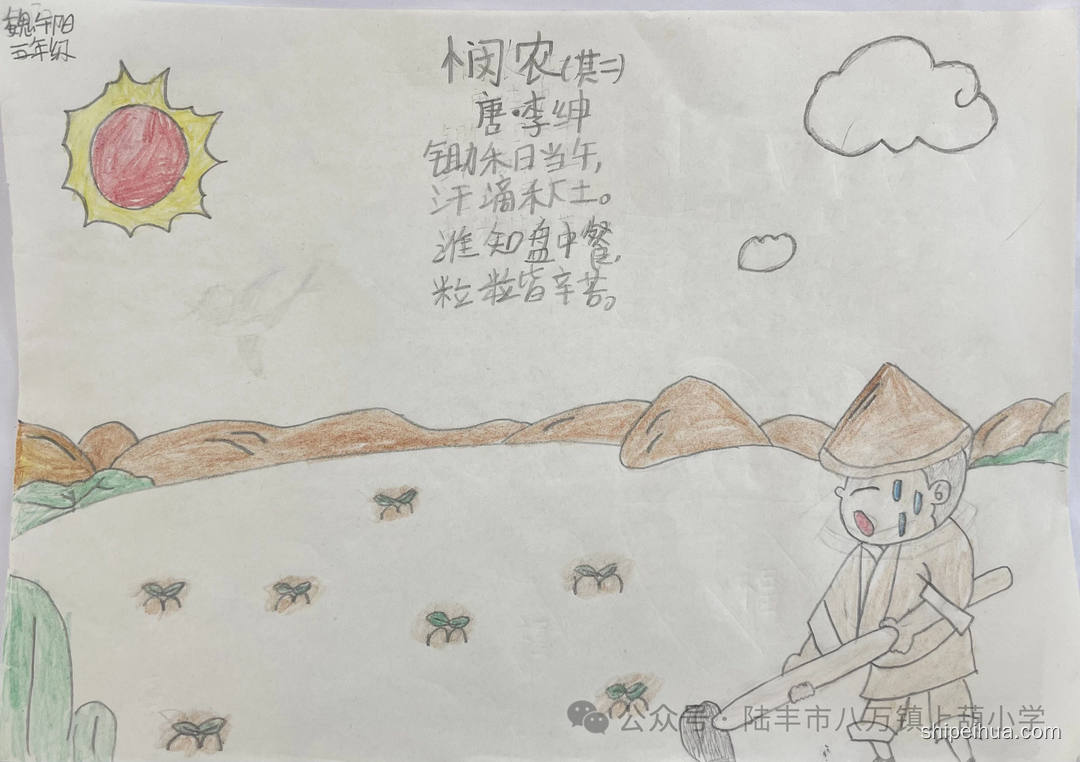 五年级
悯农(其二)
唐·李绅
锄禾日当午,
汗滴禾下土。
谁知盘中餐,
粒粒皆辛苦。
公众号·陆丰市八万镇上葫小学
shipeihua.com